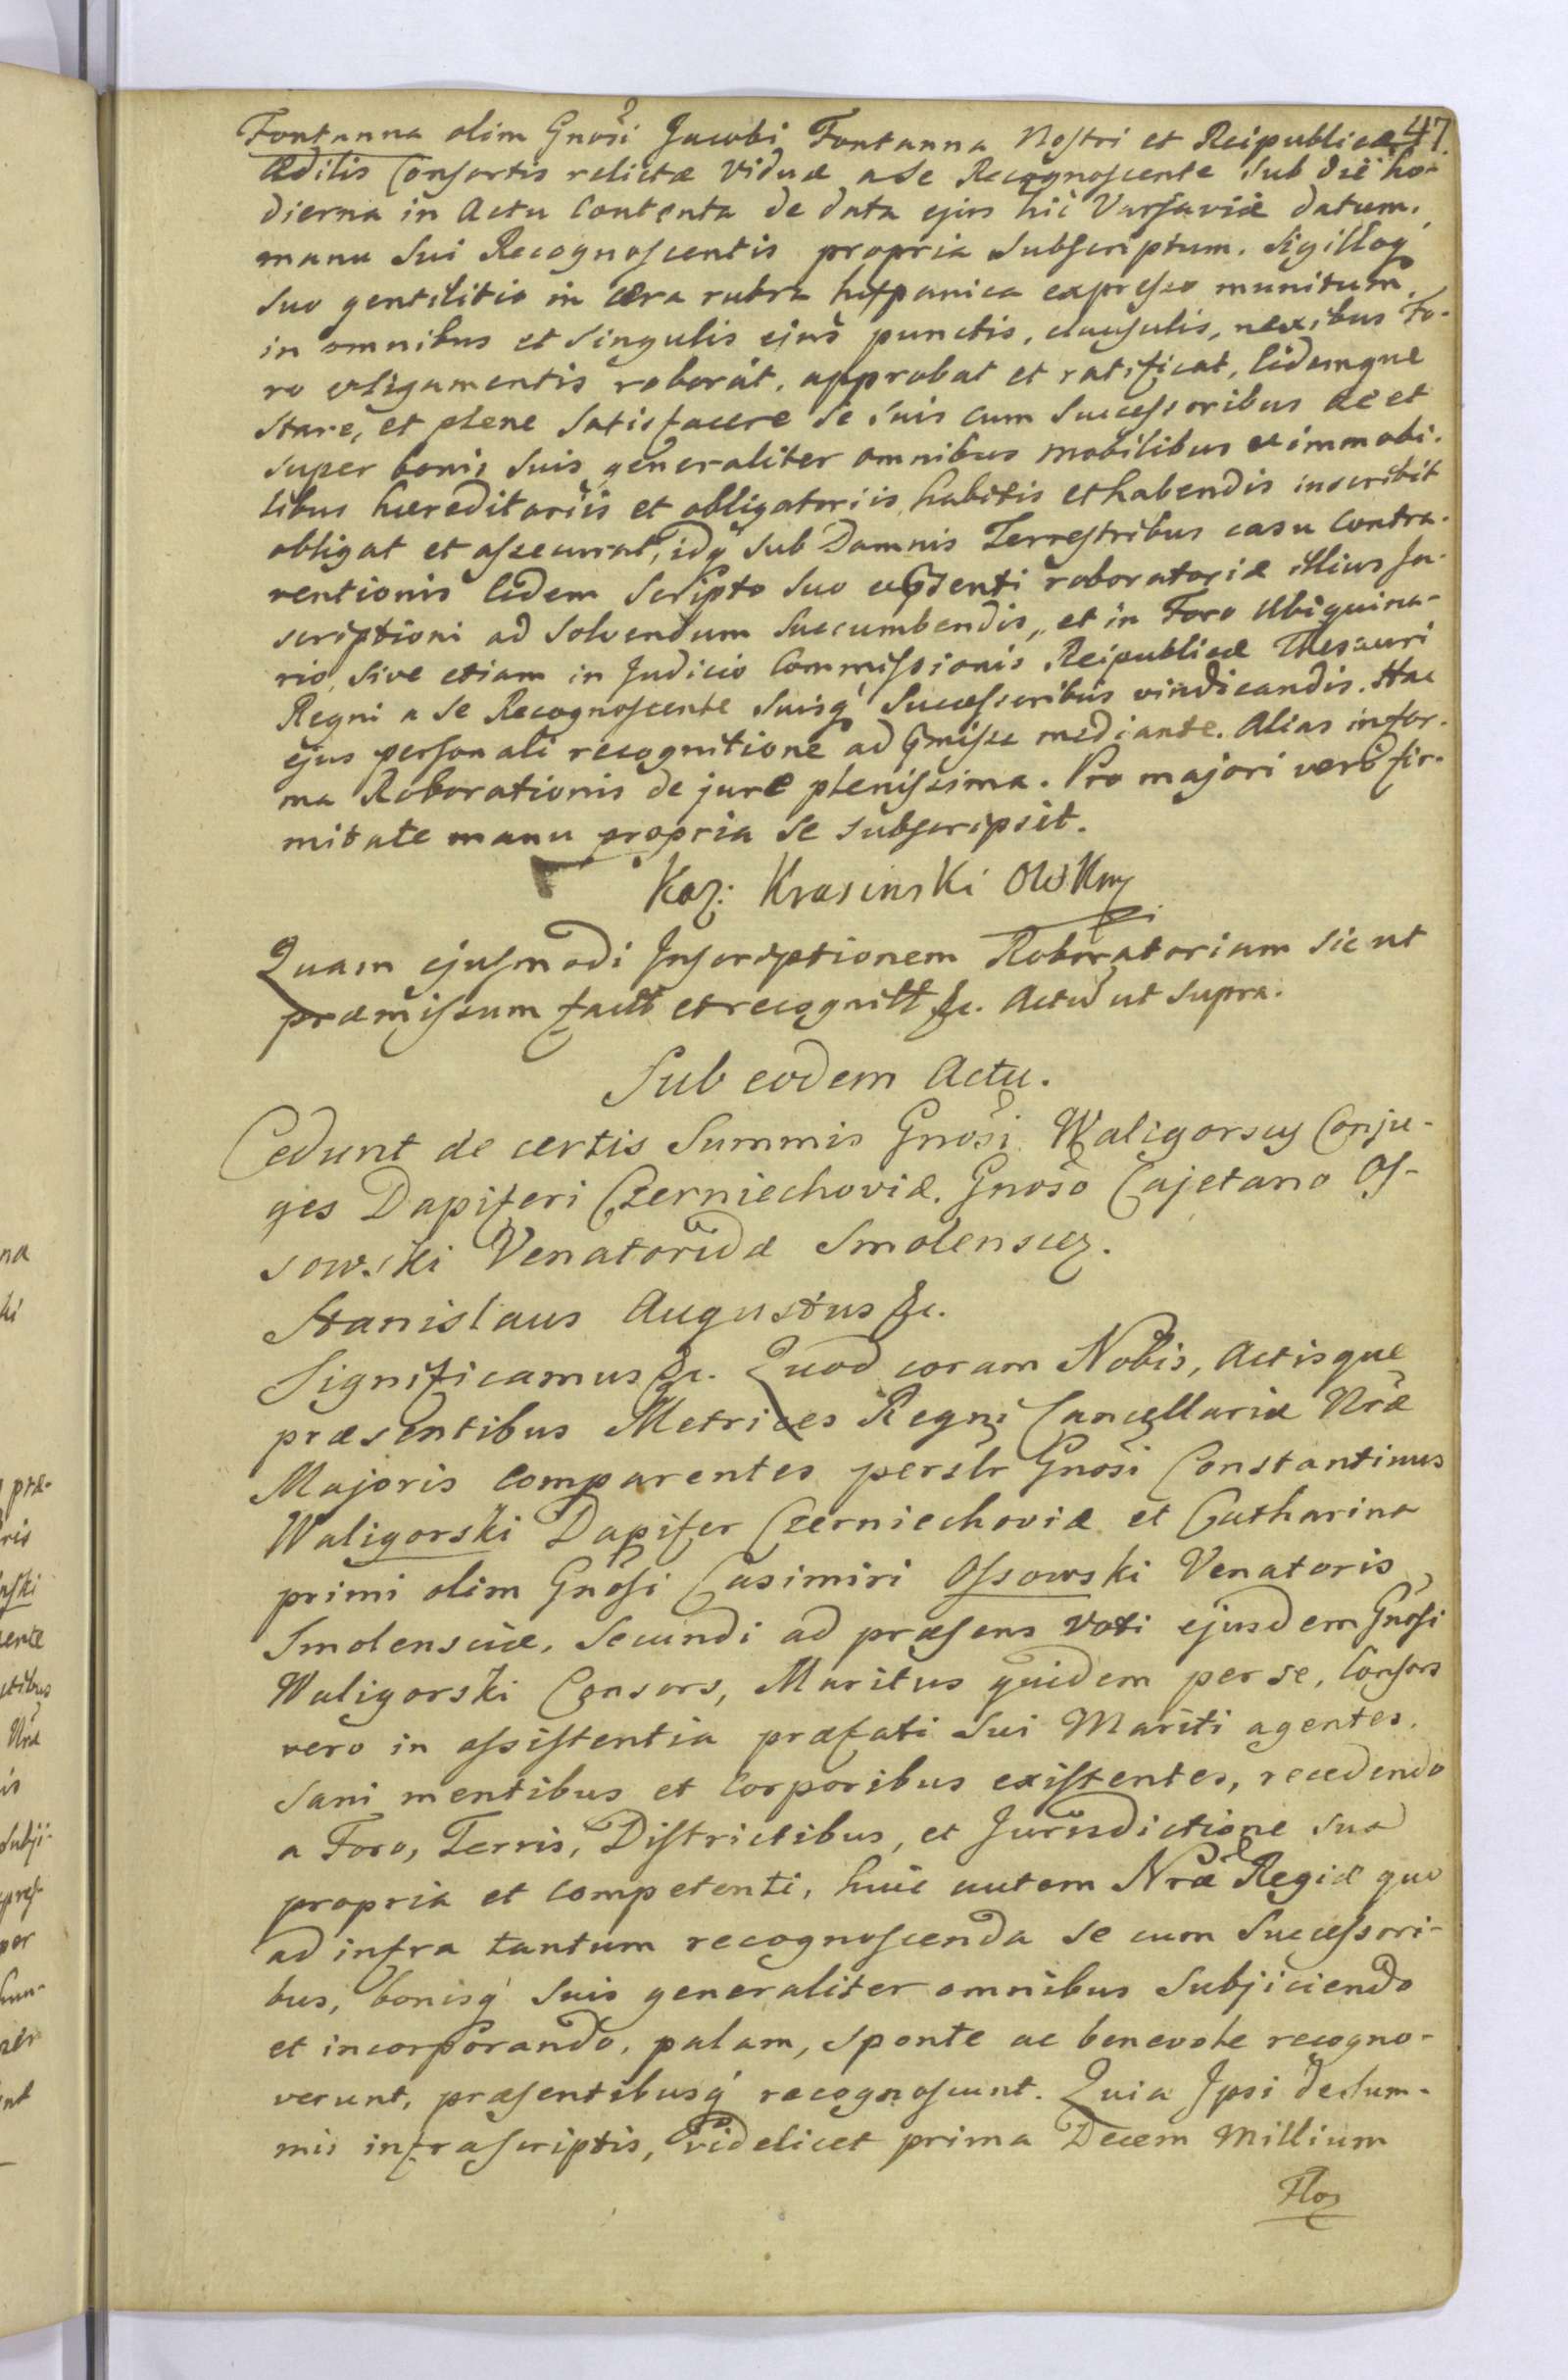 47.
Fontanna olim Gnosi Jacobi Fontanna Nostri et Reipublicæ
Ædilis Consortis relictæ Viduæ a se Recognoscente sub die ho-
dierna in Actu Contenta de data ejus hic Varsaviæ datum.
manu sui Recognoscentis propria subscriptum. sigilloq
suo gentilitio in cera rubra hispanica expresso munitum.
in omnibus et singulis ejus punctis, clausulis, nexibus Fo-
ro obligamentis roborat, approbat et ratificat, eidemque
stare, et plene satisfacere se suis cum successoribus ac et
super bonis suis generaliter omnibus mobilibus et immobi-
libus hæreditariis et obligatoriis habitis et habendis inscribit
obligat et assecurat, idq sub Damnis Terrestribus casu contra-
ventionis eidem scripto suo roboratoriæ illius In-
scriptioni ad solvendum succumbendis, et in Foro Ubiquina-
rio, sive etiam in Judicio Commissionis Reipublicæ Thesauri
Regni a se Recognoscente suisq Successoribus vindicandis. Hac
ejus personali recognitione ad præmissa mediante. Alias in for-
ma Roborationis de jure plenissima. Pro majori vero fir-
mitate manu propria se subscripsit.
Kaz: Krasinski
Quam ejusmodi Inscriptionem Roboratoriam sic ut
præmissum factt et recognitt &c. Actu ut supra.
Sub eodem Actu.
Cedunt de certis Summis Gnosi Waligorscy Conju-
ges Dapiferi Czerniechoviæ. Gnoso Cajetano Os-
sowski Venatoridæ Smolenscez.
Stanislaus Augustus &c.
Significamus &c. Quod coram Nobis, Actisque
præsentibus Metrices Regni Cancellariæ Nræ
Majoris comparentes persltr Gnosi Constantinus
Waligorski Dapifer Czerniechoviæ et Catharina
primi olim Gnosi Casimiri Ossowski Venatoris
Smolensciæ, Secundi ad præsens Voti ejusdem Gnosi
Waligorski Consors, Maritus quidem per se, Consors
vero in assistentia præfati sui Mariti agentes.
Sani mentibus et corporibus existentes, recedendo
a Foro, Terris, Districtibus, et Jurisdictione sua
propria et competenti, huic autem Nræ Regiæ quo
ad infra tantum recognoscenda se cum Successori-
bus, bonisq suis generaliter omnibus subjiciendo
et incorporando, palam, sponte ac benevole recogno-
verunt, præsentibusq recognoscunt. Quia Ipsi de Sum-
mis infrascriptis, videlicet prima Decem Millium
Floz